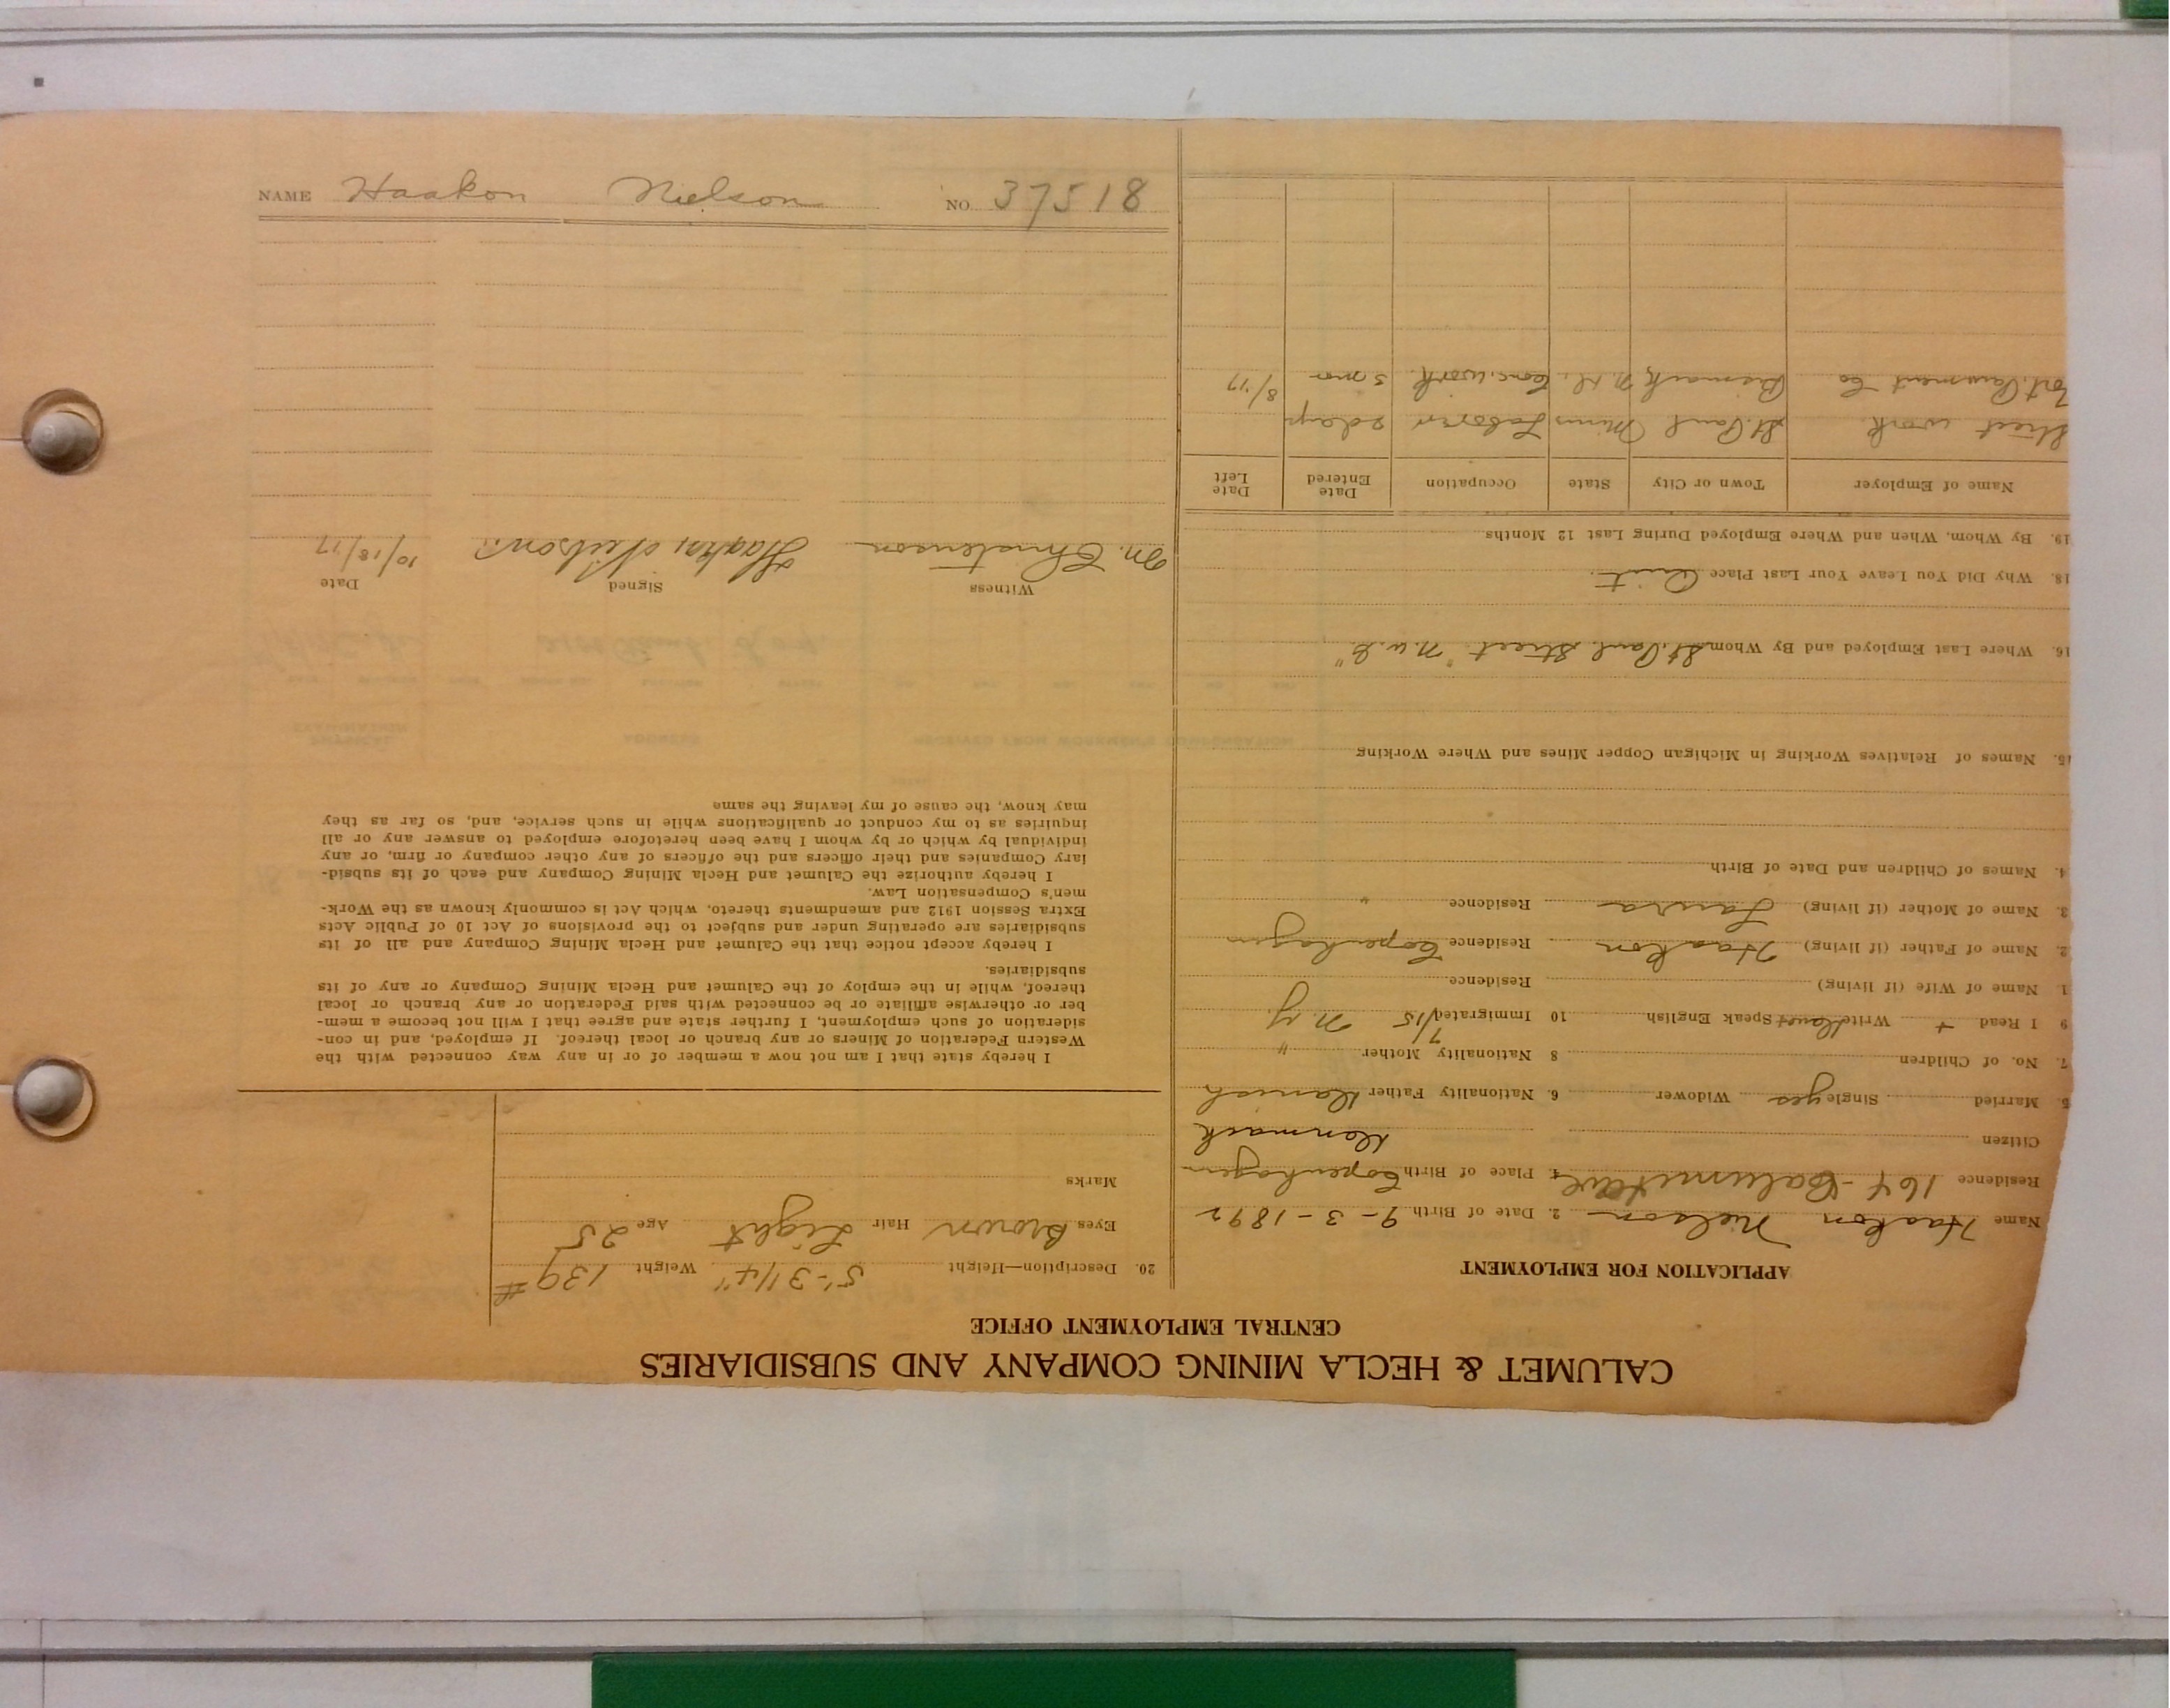 CALUMET & HECLA MINING COMPANY AND SUBSIDIARIES
CENTRAL EMPLOYMENT OFFICE
APPLICATION FOR EMPLOYMENT
Name Haakon Nielson 2. Date of Birth 9-3-1892
Residence 164-Calumet Ave 4. Place of Birth Copenhagen
Citizen Denmark
5. Married Single yes Widower 6. Nationality Father Danish
7. No. of Children 8 Nationality Mother "
9 I Read + Write Danish Speak English 10 Immigrated 7/15 N.Y.
1. Name of Wife (if living) Residence
2. Name of Father (if living) Haakon Residence Copenhagen
3. Name of Mother (if living) Laura Residence "
4. Names of Children and Date of Birth
15. Names of Relatives Working in Michigan Copper Mines and Where Working
16. Where Last Employed and By Whom St. Paul, Street
18. Why Did You Leave Your Last Place Quit
19. By Whom, When and Where Employed During Last 12 Months
Name of Employer Town or City State Occupation Date Entered Date Left
Street work St. Paul Minn Laborer 2 days
Pavement Co Bismark N.D. Conc. work 3 mo 8/17
20. Description—Height 5'-3 1/4" Weight 139#
Eyes Brown Hair Light Age 25
Marks
I hereby state that I am not now a member of or in any way connected with the
Western Federation of Miners or any branch or local thereof. If employed, and in con-
sideration of such employment, I further state and agree that I will not become a mem-
ber or otherwise affiliate or be connected with said Federation or any branch or local
thereof, while in the employ of the Calumet and Hecla Mining Company or any of its
subsidiaries.
I hereby accept notice that the Calumet and Hecla Mining Company and all of its
subsidiaries are operating under and subject to the provisions of Act 10 of Public Acts
Extra Session 1912 and amendments thereto, which Act is commonly known as the Work-
men's Compensation Law.
I hereby authorize the Calumet and Hecla Mining Company and each of its subsid-
iary Companies and their officers and the officers of any other company or firm, or any
individual by which or by whom I have been heretofore employed to answer any or all
inquiries as to my conduct or qualifications while in such service, and, so far as they
may know, the cause of my leaving the same
Witness Signed Date
M. Christenson Haakon Nielson 10/18/17
NAME Haakon Nielson NO 37518